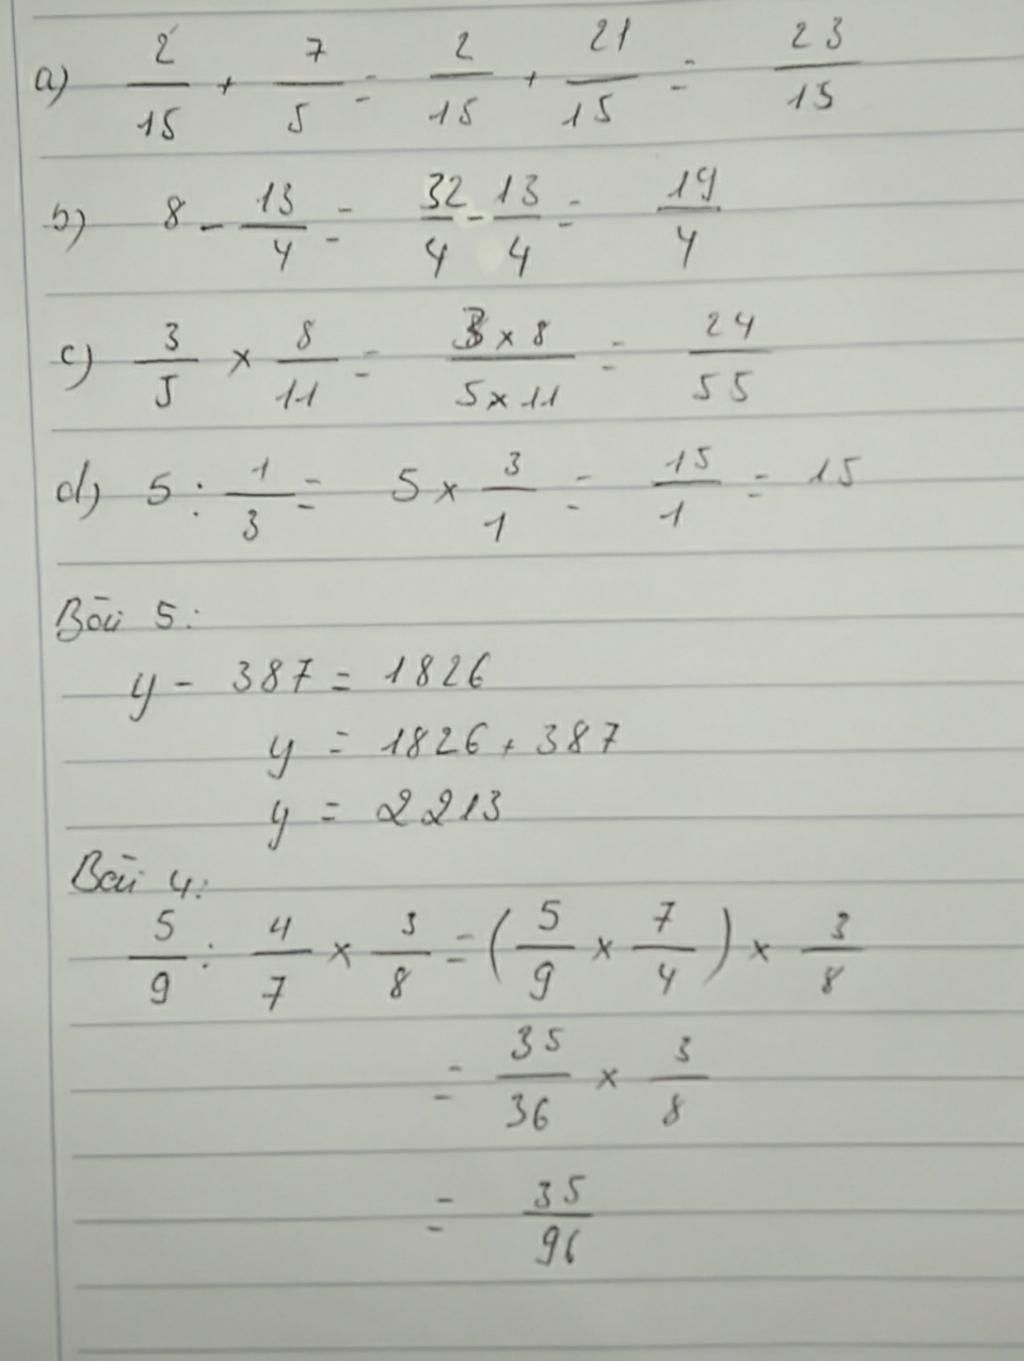 a) 2/15 + 7/5 = 2/15 + 21/15 = 23/15
b) 8 - 13/4 = 32/4 - 13/4 = 19/4
c) 3/5 × 8/11 = 3 × 8/5 × 11 = 24/55
d) 5 : 1/3 = 5 × 3/1 = 15/1 = 15
Bài 5:
y - 387 = 1826
y = 1826 + 387
y = 2213
Bài 4:
5/9 : 4/7 × 3/8 = (5/9 × 7/4) × 3/8
= 35/36 × 3/8
= 35/96